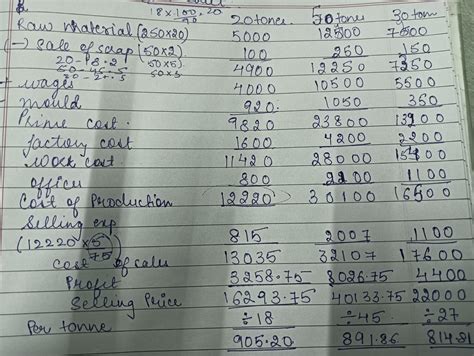 18 x 100 = 20
90
20 tonce. 70 tone 30 tom
Raw material (250x20) 5000 12500 7500
(-) Sale of scrap (50x2) 100 250 150
20-18=2 (50x5) 4900 12250 7350
50-45=5 50x3
wages 4000 10500 5500
mould 920. 1050 350
Prime cost. 9820 23800 13200
factory cost 1600 4200 2200
Work cost. 11420 28000 15400
office 800 2100 1100
Cost of Production 12220 30100 16500
Selling exp
(12220 x 5/75) 815 2007 1100
Cost of sales 13035 32107 17600
Profit 3258.75 8026.75 4400
Selling Price 16293.75 40133.75 22000
÷18 ÷45. ÷27
Per tonne 905.20 891.86 814.81